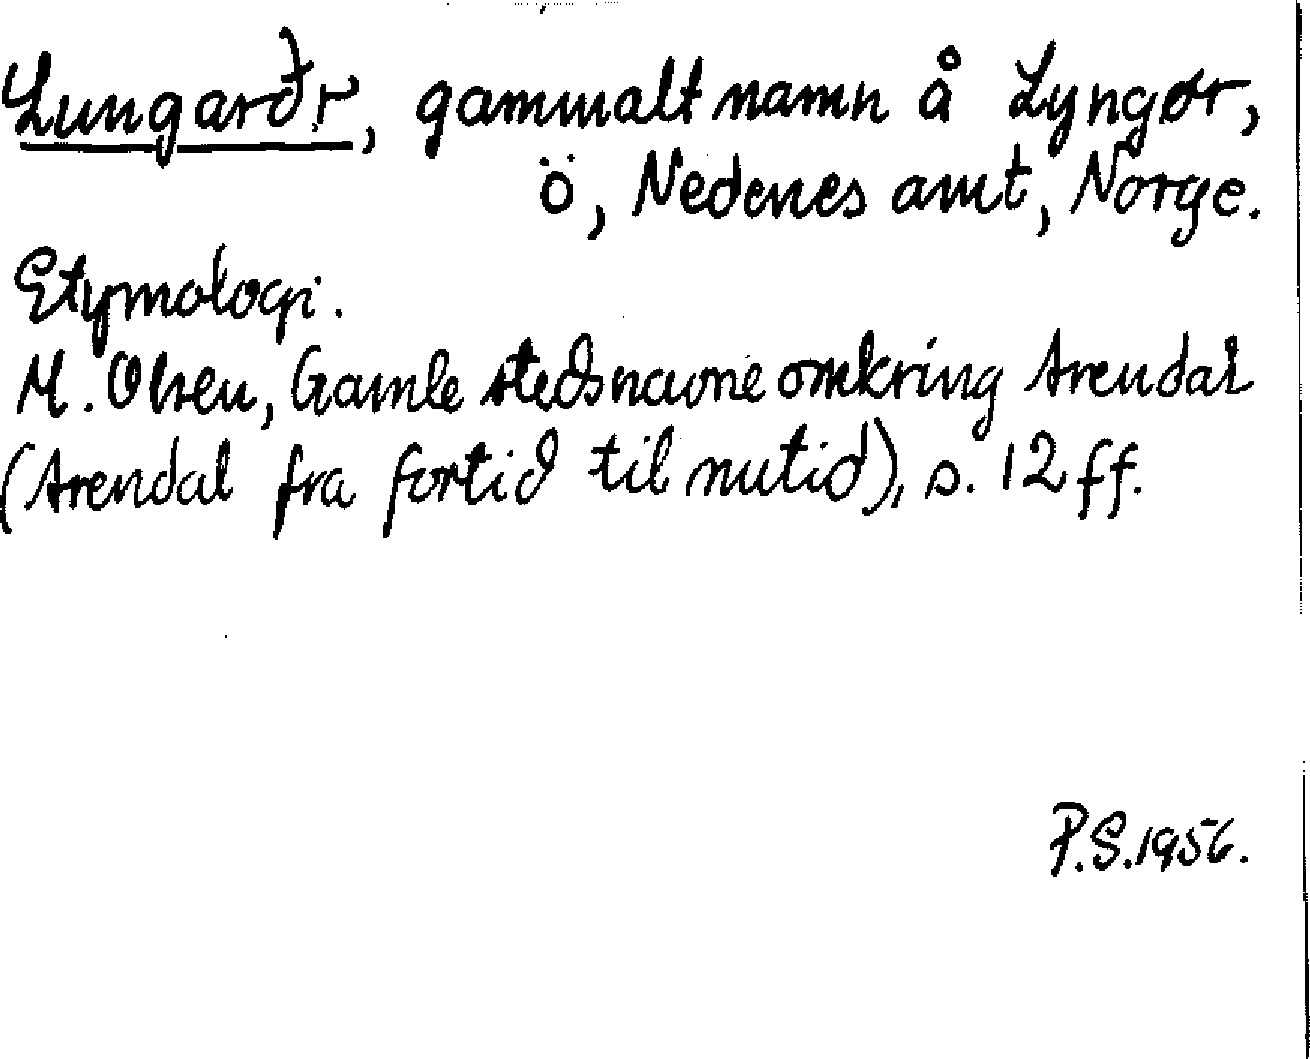 Lungarðr, gammalt namn å Lyngør,
ö, Nedenes amt, Norge.
Etymologi.
M. Olsen, Gamle stedsnavne omkring Arendal
(Arendal fra fortid til nutid), s. 12 ff.
P.S. 1956.